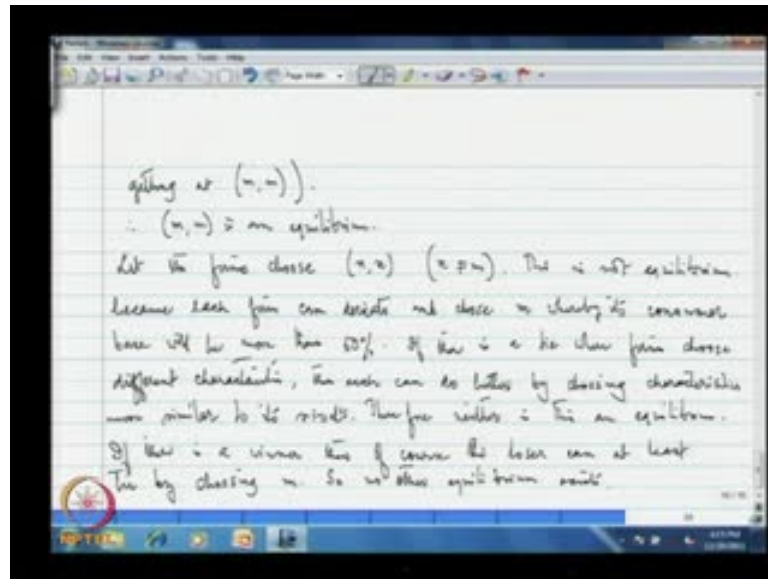 getting at (m, m)).
∴ (m, m) is an equilibrium.
Let the firms choose (x, x) (x ≠ m). This is not equilibrium
because each firm can deviate and choose m whereby its consumer
base will be more than 50%. If there is a tie where firms choose
different characteristics, then each can do better by choosing characteristics
more similar to its rival's. Therefore neither is this an equilibrium.
If there is a winner then of course the loser can at least
Tie by choosing m. So no other equilibrium exists.
NPTEL